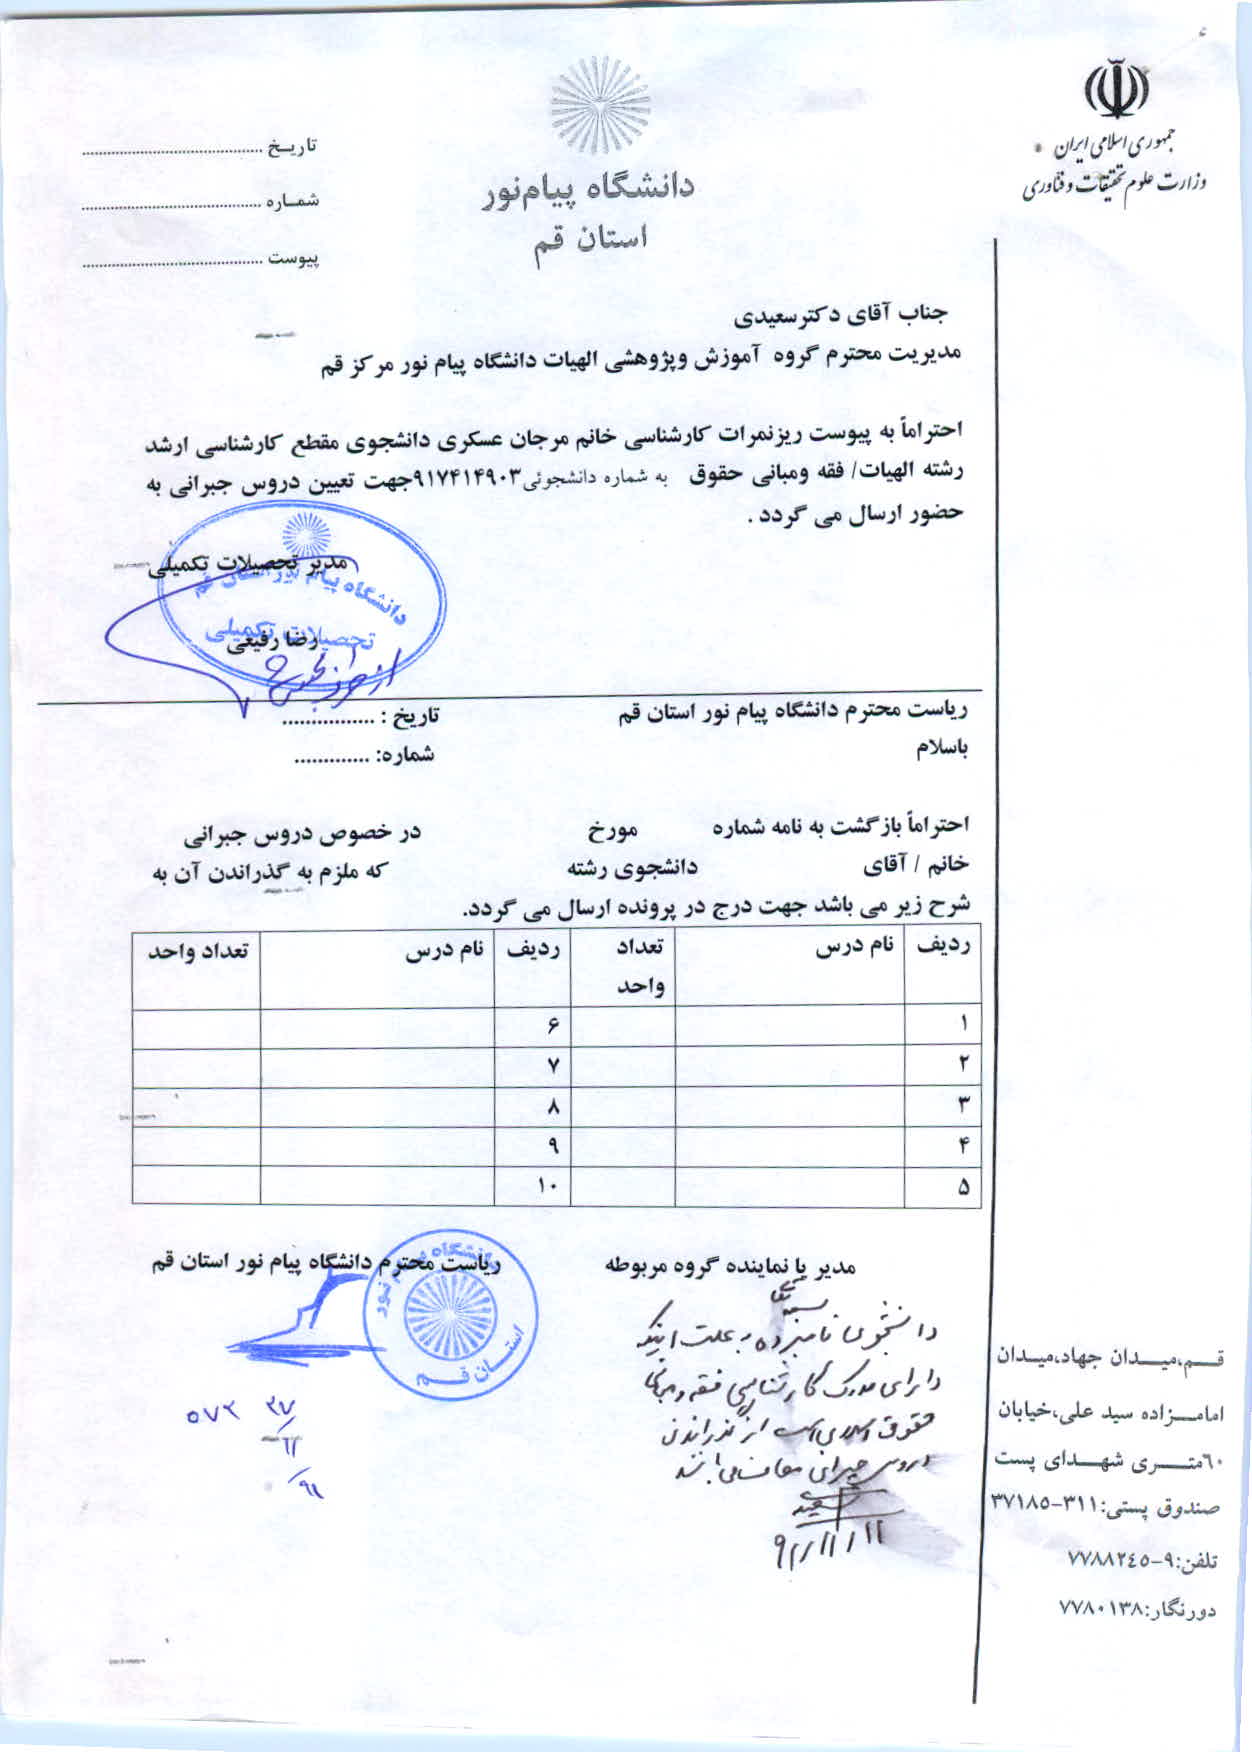 جمهوری اسلامی ایران
وزارت علوم تحقیقات و فناوری
دانشگاه پیام‌نور
استان قم
تاریـخ ............................................
شمـاره ............................................
پیوست ............................................
جناب آقای دکترسعیدی
مدیریت محترم گروه آموزش وپژوهشی الهیات دانشگاه پیام نور مرکز قم
احتراماً به پیوست ریزنمرات کارشناسی خانم مرجان عسکری دانشجوی مقطع کارشناسی ارشد
رشته الهیات/ فقه ومبانی حقوق به شماره دانشجوئی۹۱۷۴۱۴۹۰۳جهت تعیین دروس جبرانی به
حضور ارسال می گردد .
مدیر تحصیلات تکمیلی
دانشگاه پیام نور استان قم
تحصیلات تکمیلی
رضا رفیعی
ریاست محترم دانشگاه پیام نور استان قم
تاریخ : ................
باسلام
شماره: .............
احتراماً بازگشت به نامه شماره مورخ در خصوص دروس جبرانی
خانم / آقای دانشجوی رشته که ملزم به گذراندن آن به
شرح زیر می باشد جهت درج در پرونده ارسال می گردد.
ردیف نام درس تعداد واحد ردیف نام درس تعداد واحد
۱ ۶
۲ ۷
۳ ۸
۴ ۹
۵ ۱۰
مدیر یا نماینده گروه مربوطه
ریاست محترم دانشگاه پیام نور استان قم
دانشگاه پیام نور
استـان قـــم
دانشجوی نامبرده به علت اینکه
دارای مدرک کارشناسی فقه و مبانی
حقوق اسلامی است از گذراندن
دروس جبرانی معاف می باشد
سعیدی
۹۲/۱۱/۱۲
۵۷۲
قــم،میــدان جهاد،میدان
امامــزاده سید علی،خیابان
۶۰متــری شهـدای پست
صندوق پستی:۳۱۱-۳۷۱۸۵
تلفن:۹-۷۷۸۸۲٤٥
دورنگار:۷۷۸۰۱۳۸